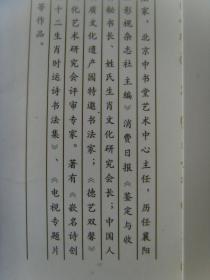 家，北京中书堂艺术中心主任，历任襄阳
影视杂志社 主编《消费日报《鉴定与收
秘书长、姓氏生肖文化研究会长；中国人
质文化遗产园特邀书法家；《德艺双馨
化艺术研究会评审专家。著有《嵌名诗创
十二生肖时运诗书法集》、《电视专题片
等作品。